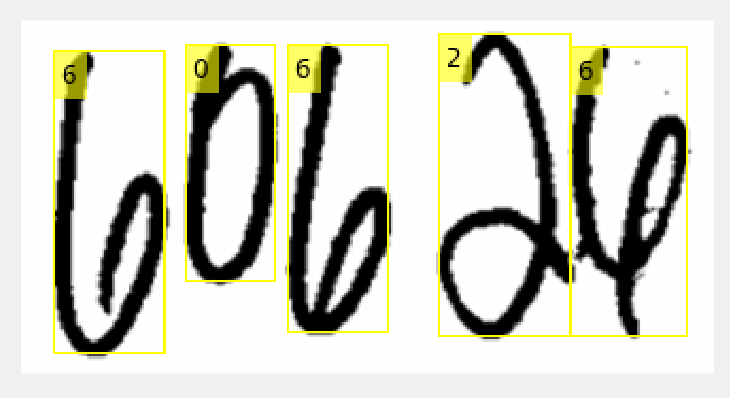 6 0 6 2 6
606 26